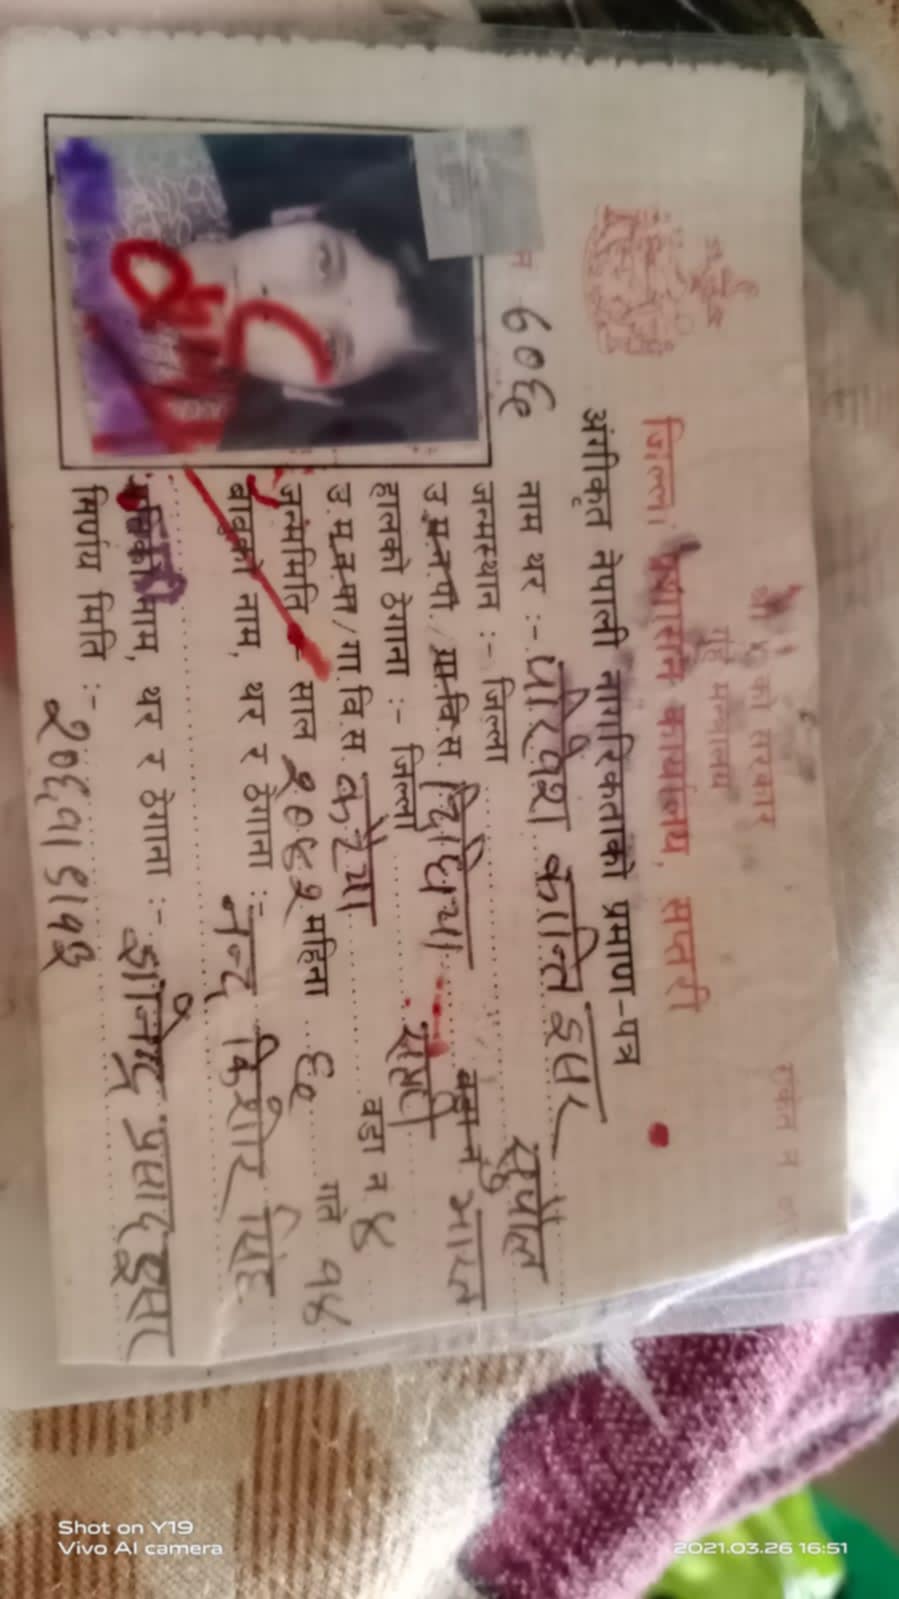 श्री ५ को सरकार
गृह मन्त्रालय
जिल्ला प्रशासन कार्यालय, सप्तरी
अंगीकृत नेपाली नागरिकताको प्रमाण-पत्र
६०६
नाम थर :- कान्ति इसर
जन्मस्थान :- जिल्ला सुपौल
उ.म.न.पा. / ग्रा.वि.स. दिघिया वडा नं भारत
हालको ठेगाना :- जिल्ला सप्तरी
उ.म.न.पा/गा.वि.स. करैया वडा न ४
जन्ममिति - साल २०४२ महिना ६ गते १४
बाबुको नाम, थर र ठेगाना :- नन्द किशोर सिंह
पतिको नाम, थर र ठेगाना :- ज्ञानेन्द्र प्रसाद इसर
निर्णय मिति :- २०६१।८।१३
2021.03.26 16:51
Shot on Y19
Vivo AI camera